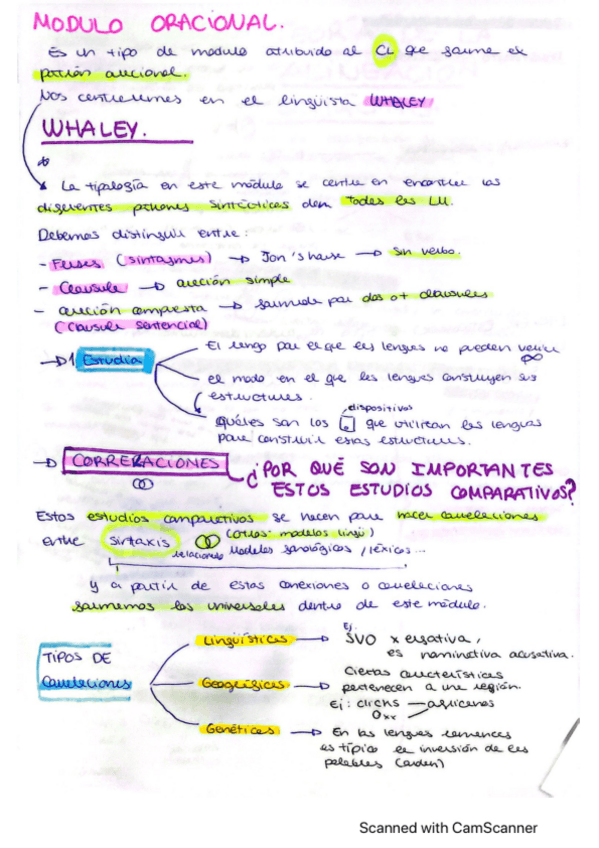 MODULO ORACIONAL.
Es un tipo de modulo atribuido al CL que asume el
patrón oracional.
Nos centraremos en el lingüista WHALEY
WHALEY.
La tipología en este módulo se centra en encontrar los
diferentes patrones sintácticos dem todas las LN.
Debemos distinguir entre:
- Frases (sintagmas) → Jon's house → sin verbo.
- Clausula → oración simple
- oración compuesta → formada por dos o + clausulas
(clausula sentencial)
→ 1 Estudia
El rango por el que las lenguas no pueden variar ∞
el modo en el que las lenguas construyen sus
estructuras.
dispositivos
Cuáles son los que utilizan las lenguas
para construir estas estructuras.
→ CORRELACIONES
¿POR QUÉ SON IMPORTANTES
ESTOS ESTUDIOS COMPARATIVOS?
Estos estudios comparativos se hacen para hacer correlaciones
entre sintaxis relaciones (otros modelos lingü)
modelos fonológicos / léxicos...
Y a partir de estas conexiones o correlaciones
formamos los universales dentro de este módulo.
TIPOS DE
correlaciones
Lingüísticas → Ej. SVO x ergativa,
es nominativa acusativa.
Geográficas → Ciertas características
pertenecen a una región.
Ej: clicks — africanas
Genéticas → En las lenguas romances
es típico la inversión de las
palabras (orden)
Scanned with CamScanner